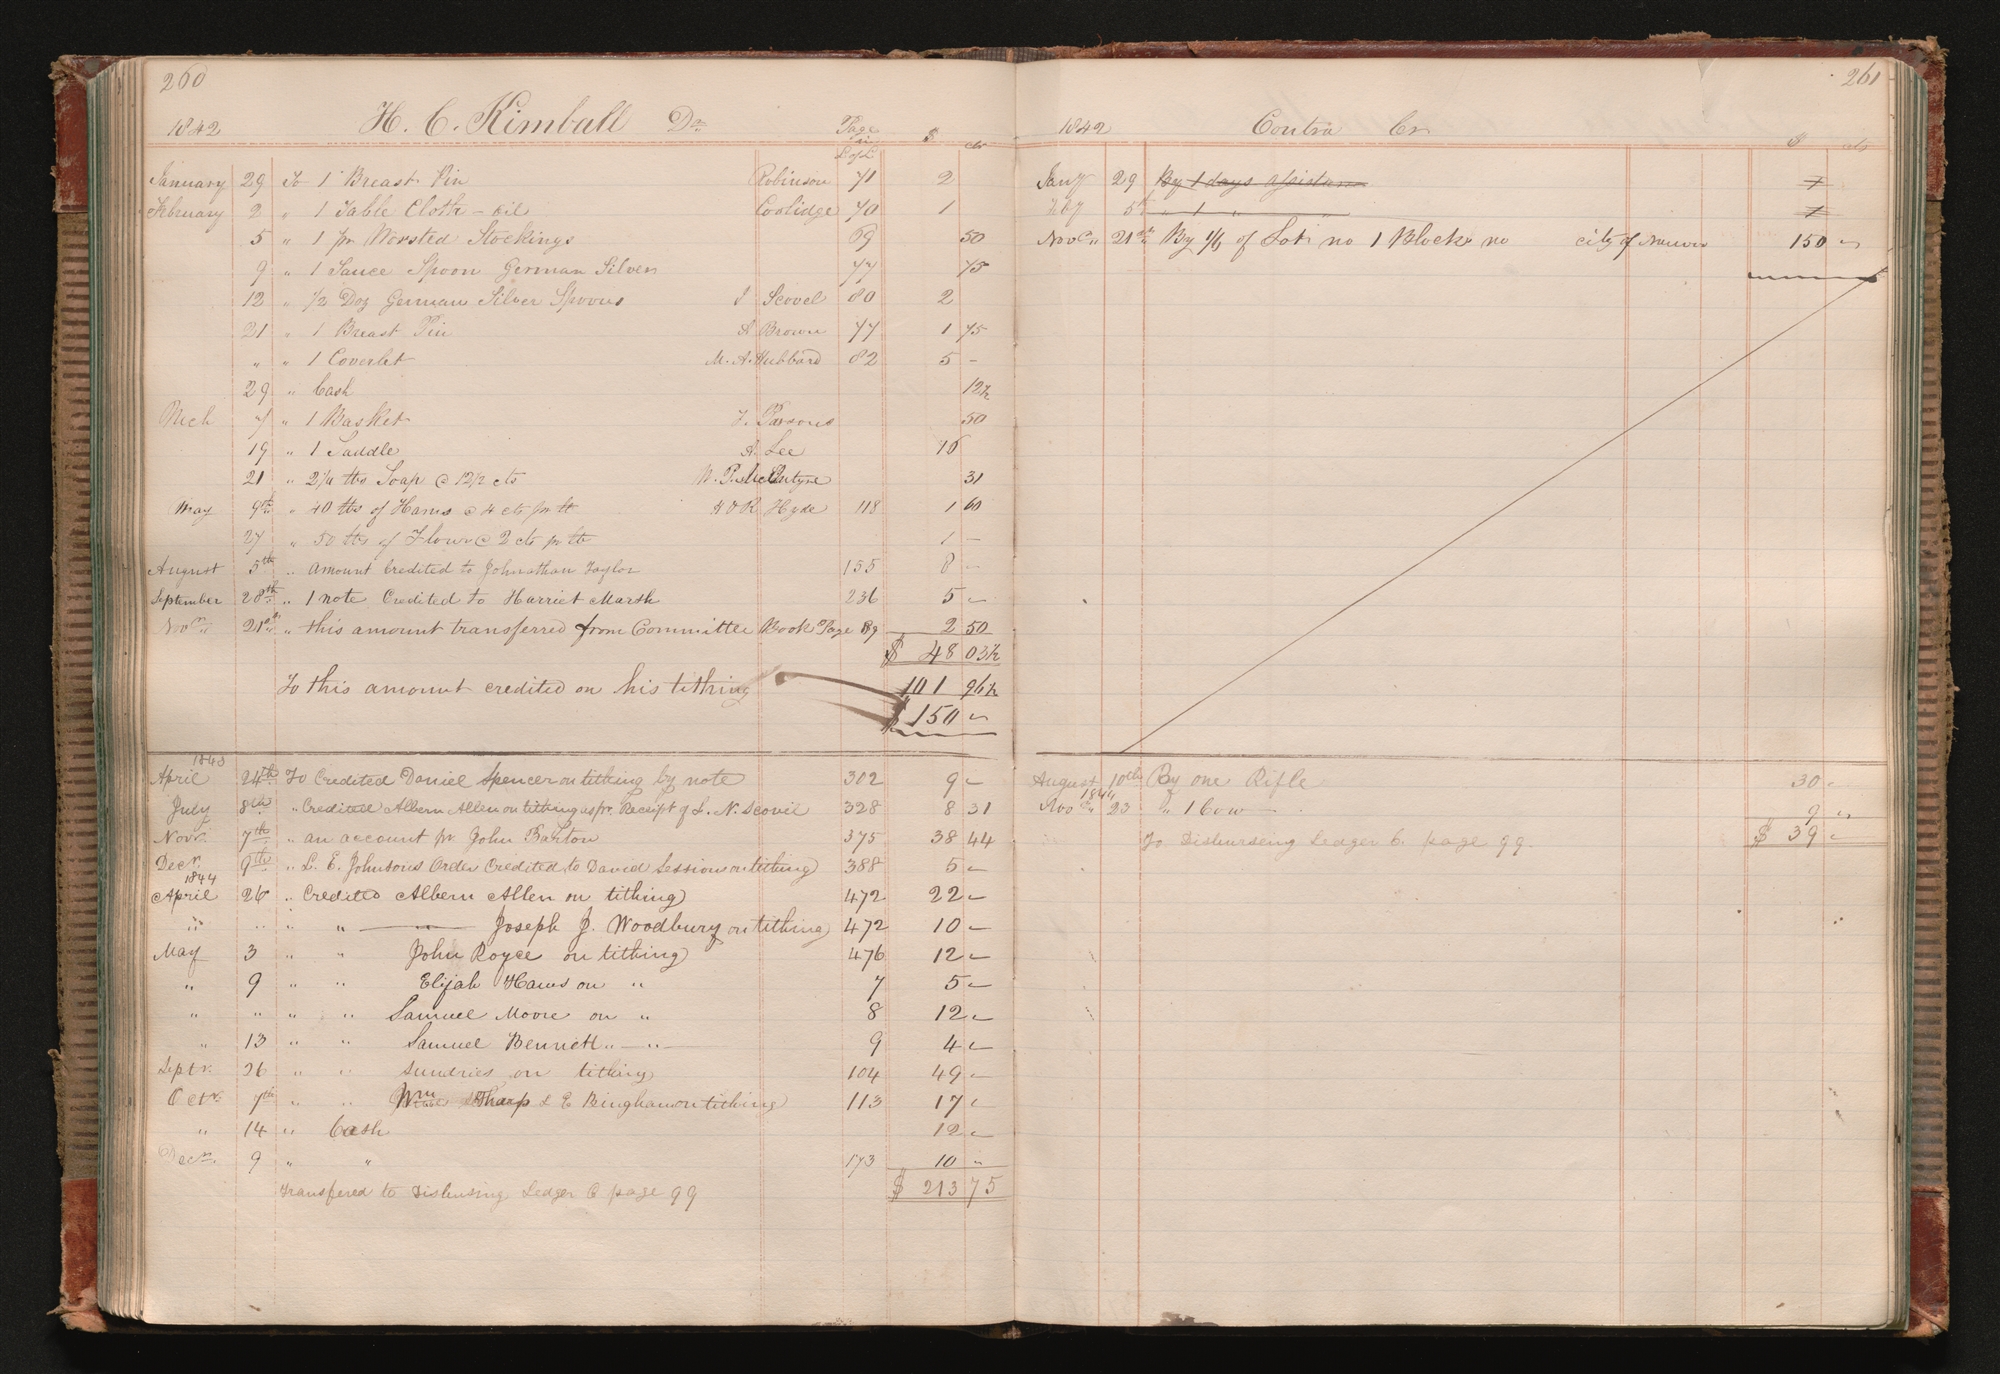 260
1842 H. C. Kimball Dr. Page in L of L $ cts
January 29 To 1 Breast Pin Robinson 71 2
February 2 " 1 Table Cloth - oil Coolidge 70 1
5 " 1 pr Worsted Stockings 69 50
9 " 1 Sauce Spoon German Silver 77 75
12 " 1/2 Doz German Silver Spoons Scovel 80 2
21 " 1 Breast Pin A Brown 77 1 75
" " 1 Coverlet M. A. Hubbard 82 5 -
29 " Cash 12½
Mch 7 " 1 Basket T. Parsons 50
19 " 1 Saddle A. Lee 16
21 " 2¼ lbs Soap @ 12½ cts W. P. McIntyre 31
May 9th " 40 lbs of Hams @ 4 cts pr lb Hyde 118 1 60
27 " 50 lbs of Flour @ 2 cts pr lb 1 -
August 5th " amount Credited to Johnathan Taylor 155 8 -
September 28th " 1 note Credited to Harriet Marsh 236 5 -
Novr " 21st " this amount transferred from Committee Book Page 89 2 50
$ 48 03½
To this amount credited on his tithing 101 96½
$ 150 -
1843
April 24th To Credited Daniel Spencer on tithing by note 302 9 -
July 8th " Credited Albern Allen on tithing as pr. Receipt of L. N. Scovil 328 8 31
Novr. 7th " an account pr. John Bahton 375 38 44
Decr. 9th " L. E. Johnsons Order Credited to David Session on tithing 388 5 -
1844
April 26 " Credited Albern Allen on tithing 472 22 -
" " " " Joseph J. Woodbury on tithing 472 10 -
May 3 " " John Royce on tithing 476 12 -
" 9 " " Elijah Haws on " 7 5 -
" " " " Samuel Moore on " 8 12 -
" 13 " " Samuel Bennett " - " - 9 4 -
Septr. 26 " " sundries on tithing 104 49 -
Octr. 7th " " Wm Tharp & E Bingham on tithing 113 17 -
" 14 " Cash 12 -
Decr. 9 " " 173 10 "
Transfered to Disbursing Ledger C page 99 $ 213 75
261
1842 Contra Cr. $ cts
Jany 29 By 1 days assistance 1
Feby 5th " 1 " " 1
Novr " 21st By 1/6 of Lot no 1 Block no city of Nauvoo 150 "
August 10th By one Rifle 30 -
1844
Novr " 23 " 1 Cow 9 "
To Disburseing Ledger C. page 99. $ 39 -